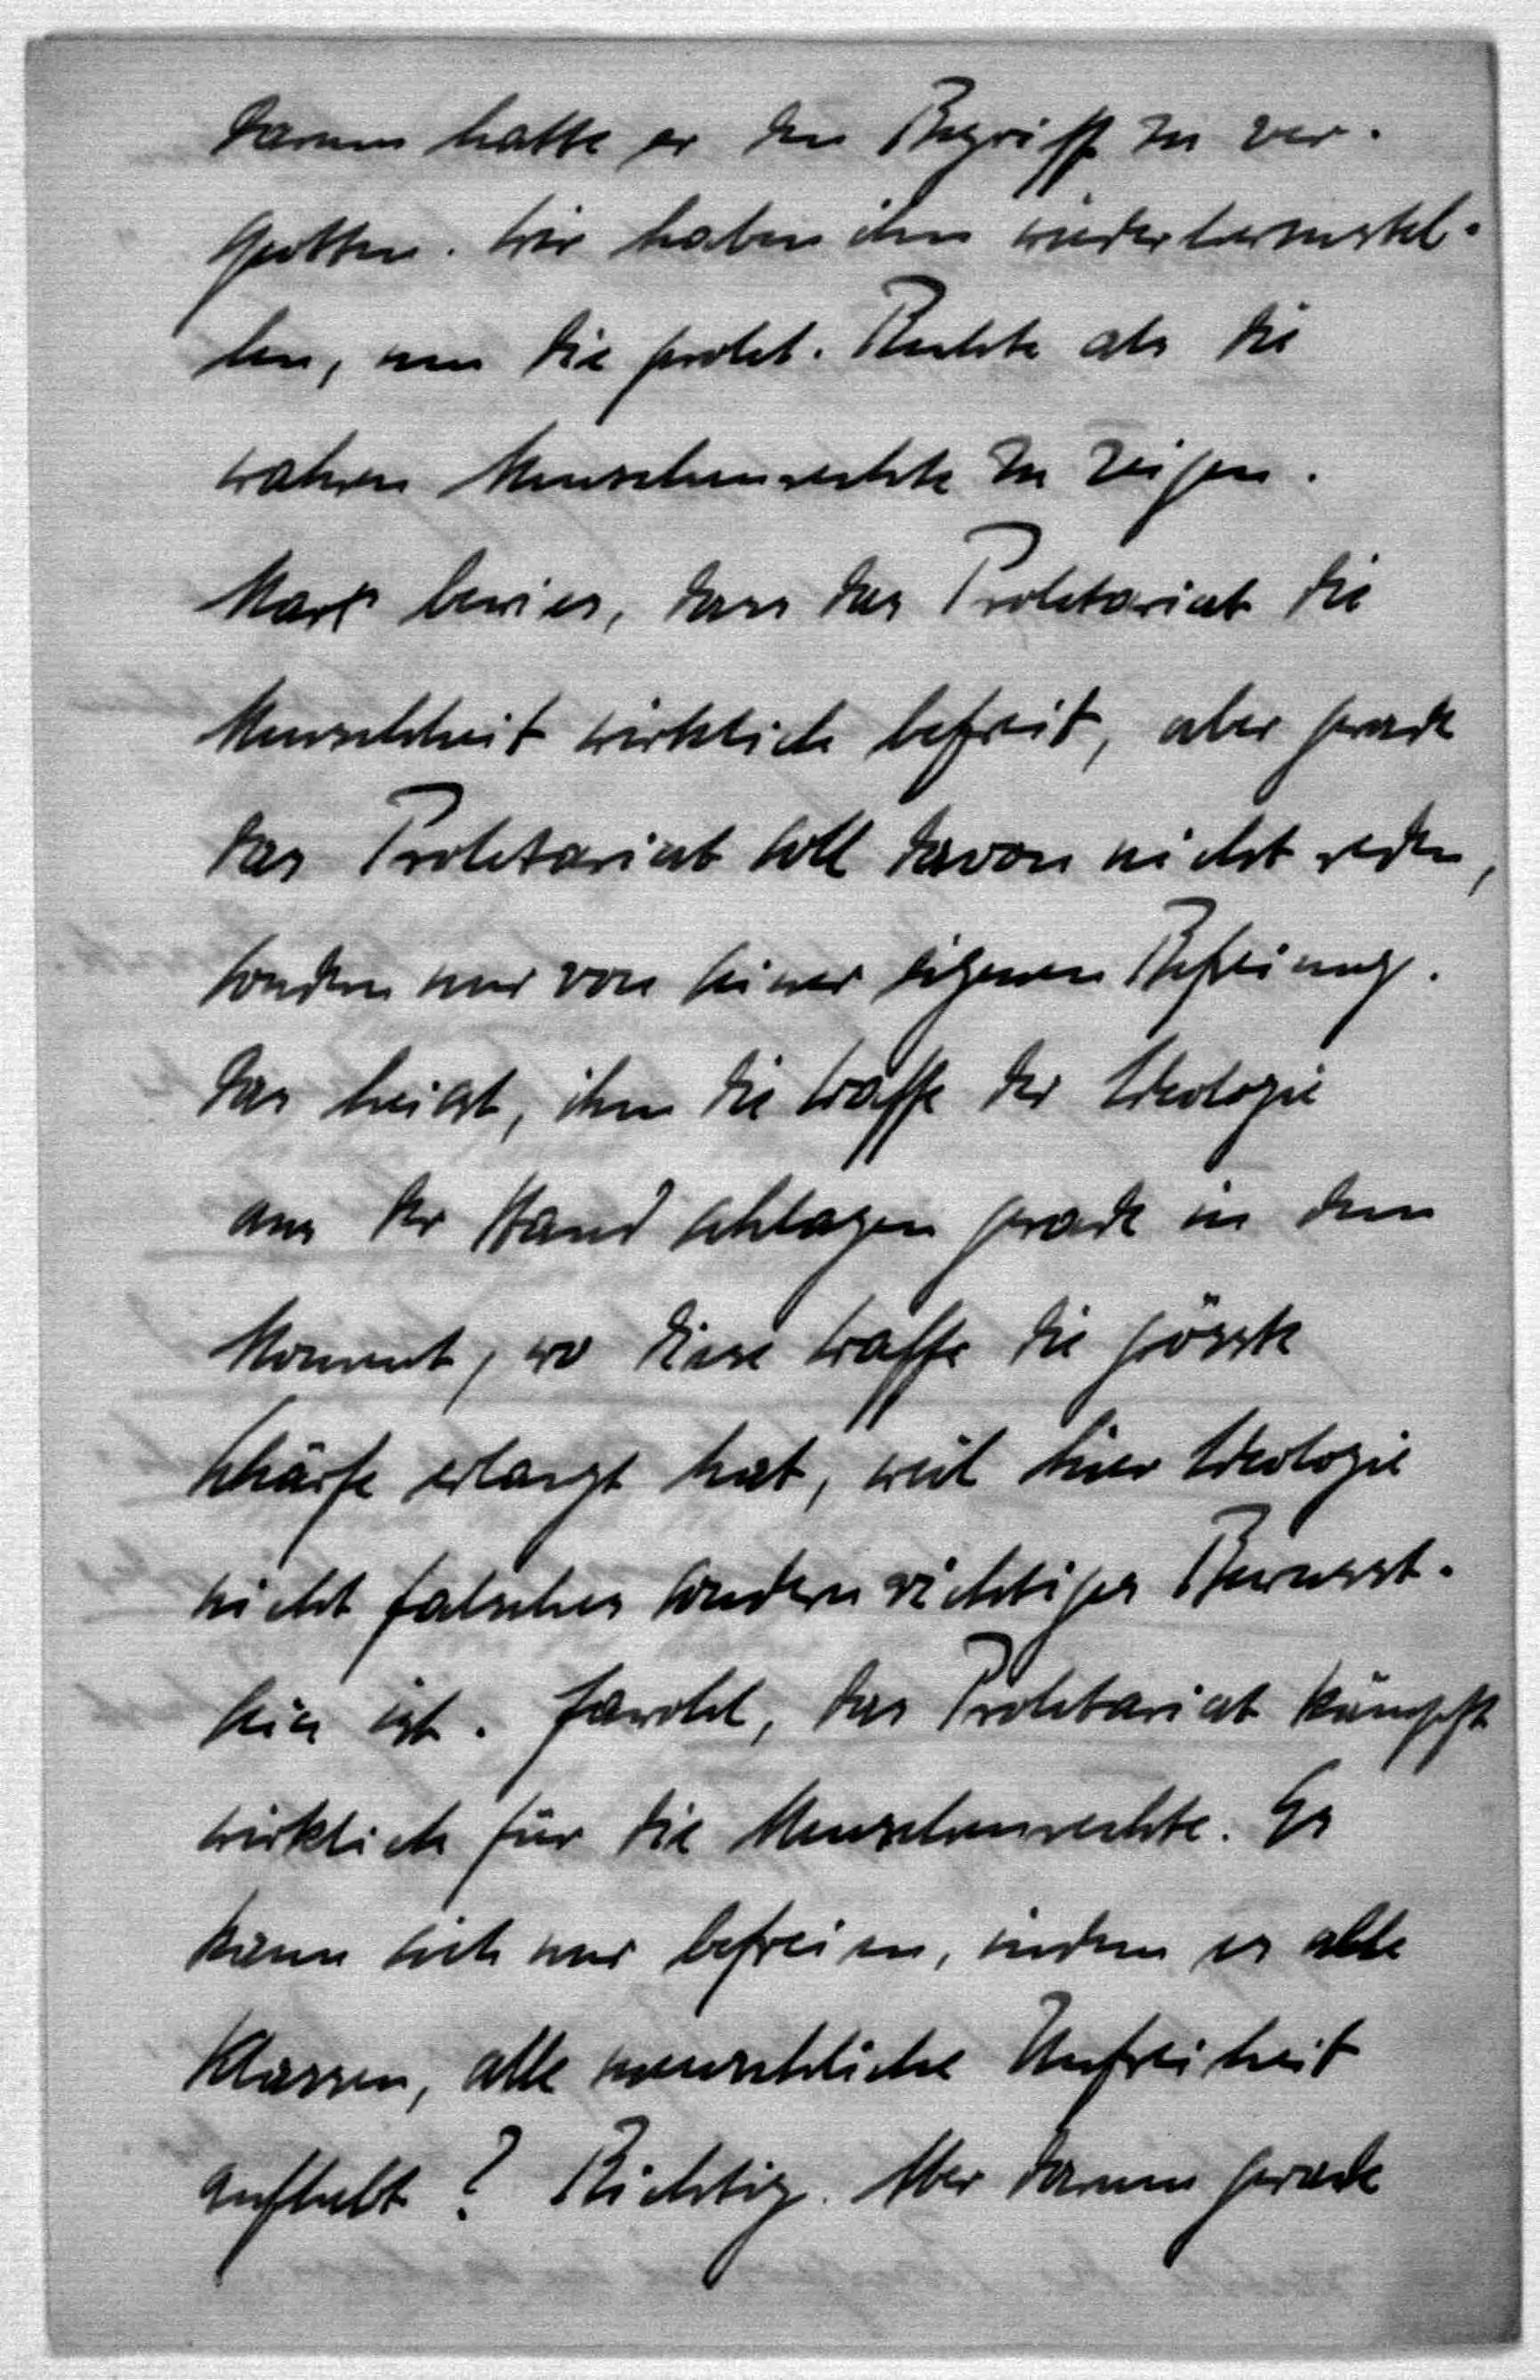 Darum hatte er den Begriff zu ver-
spotten. Wir haben ihn wiederherzustel-
len, um die prolet. Rechte als die
wahren Menschenrechte zu zeigen.
Marx bewies, dass das Proletariat die
Menschheit wirklich befreit, aber gerade
das Proletariat soll davon nicht reden,
sondern nur von seiner eigenen Befreiung.
Das heisst, ihm die Waffe der Ideologie
aus der Hand schlagen gerade in dem
Moment, wo diese Waffe die grösste
Schärfe erlangt hat, weil hier Ideologie
nicht falsches sondern richtiges Bewusst-
sein ist. Jawohl, das Proletariat kämpft
wirklich für die Menschenrechte. Es
kann sich nur befreien, indem es alle
Klassen, alle menschliche Unfreiheit
aufhebt? Richtig. Aber darum gerade